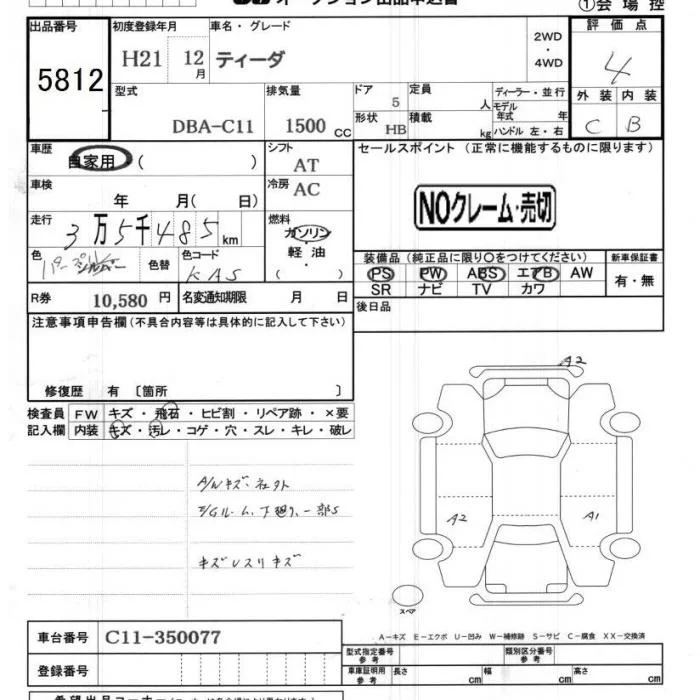 オークション出品申込書
①会場控
出品番号
5812
初度登録年月
H21 12月
車名・グレード
ティーダ
2WD
・
4WD
評価点
4
型式
DBA-C11
排気量
1500 CC
ドア
5
定員
人
ディーラー・並行
モデル年式 年
外装 内装
C B
形状
HB
積載
kg
ハンドル 左・右
車歴
自家用 ( )
シフト
AT
セールスポイント (正常に機能するものに限ります)
車検
年 月( 日)
冷房
AC
NOクレーム・売切
走行
3万5千485km
燃料
ガソリン
・
軽油
・
( )
色
色替
色コード
KAS
装備品 (純正品に限り○をつけてください)
新車保証書
PS PW ABS エアB AW
有・無
SR ナビ TV カワ
R券 10,580 円
名変通知期限 月 日
後日品
注意事項申告欄(不具合内容等は具体的に記入して下さい)
修復歴 有 〔箇所 〕
検査員記入欄
FW キズ・飛石・ヒビ割・リペア跡・×要
内装 キズ・汚レ・コゲ・穴・スレ・キレ・破レ
A2
A2
A1
スペア
A-キズ E-エクボ U-凹み W-補修跡 S-サビ C-腐食 XX-交換済
車台番号 C11-350077
登録番号
型式指定番号 参考
類別区分番号 参考
車庫証明用 参考 長さ cm 幅 cm 高さ cm